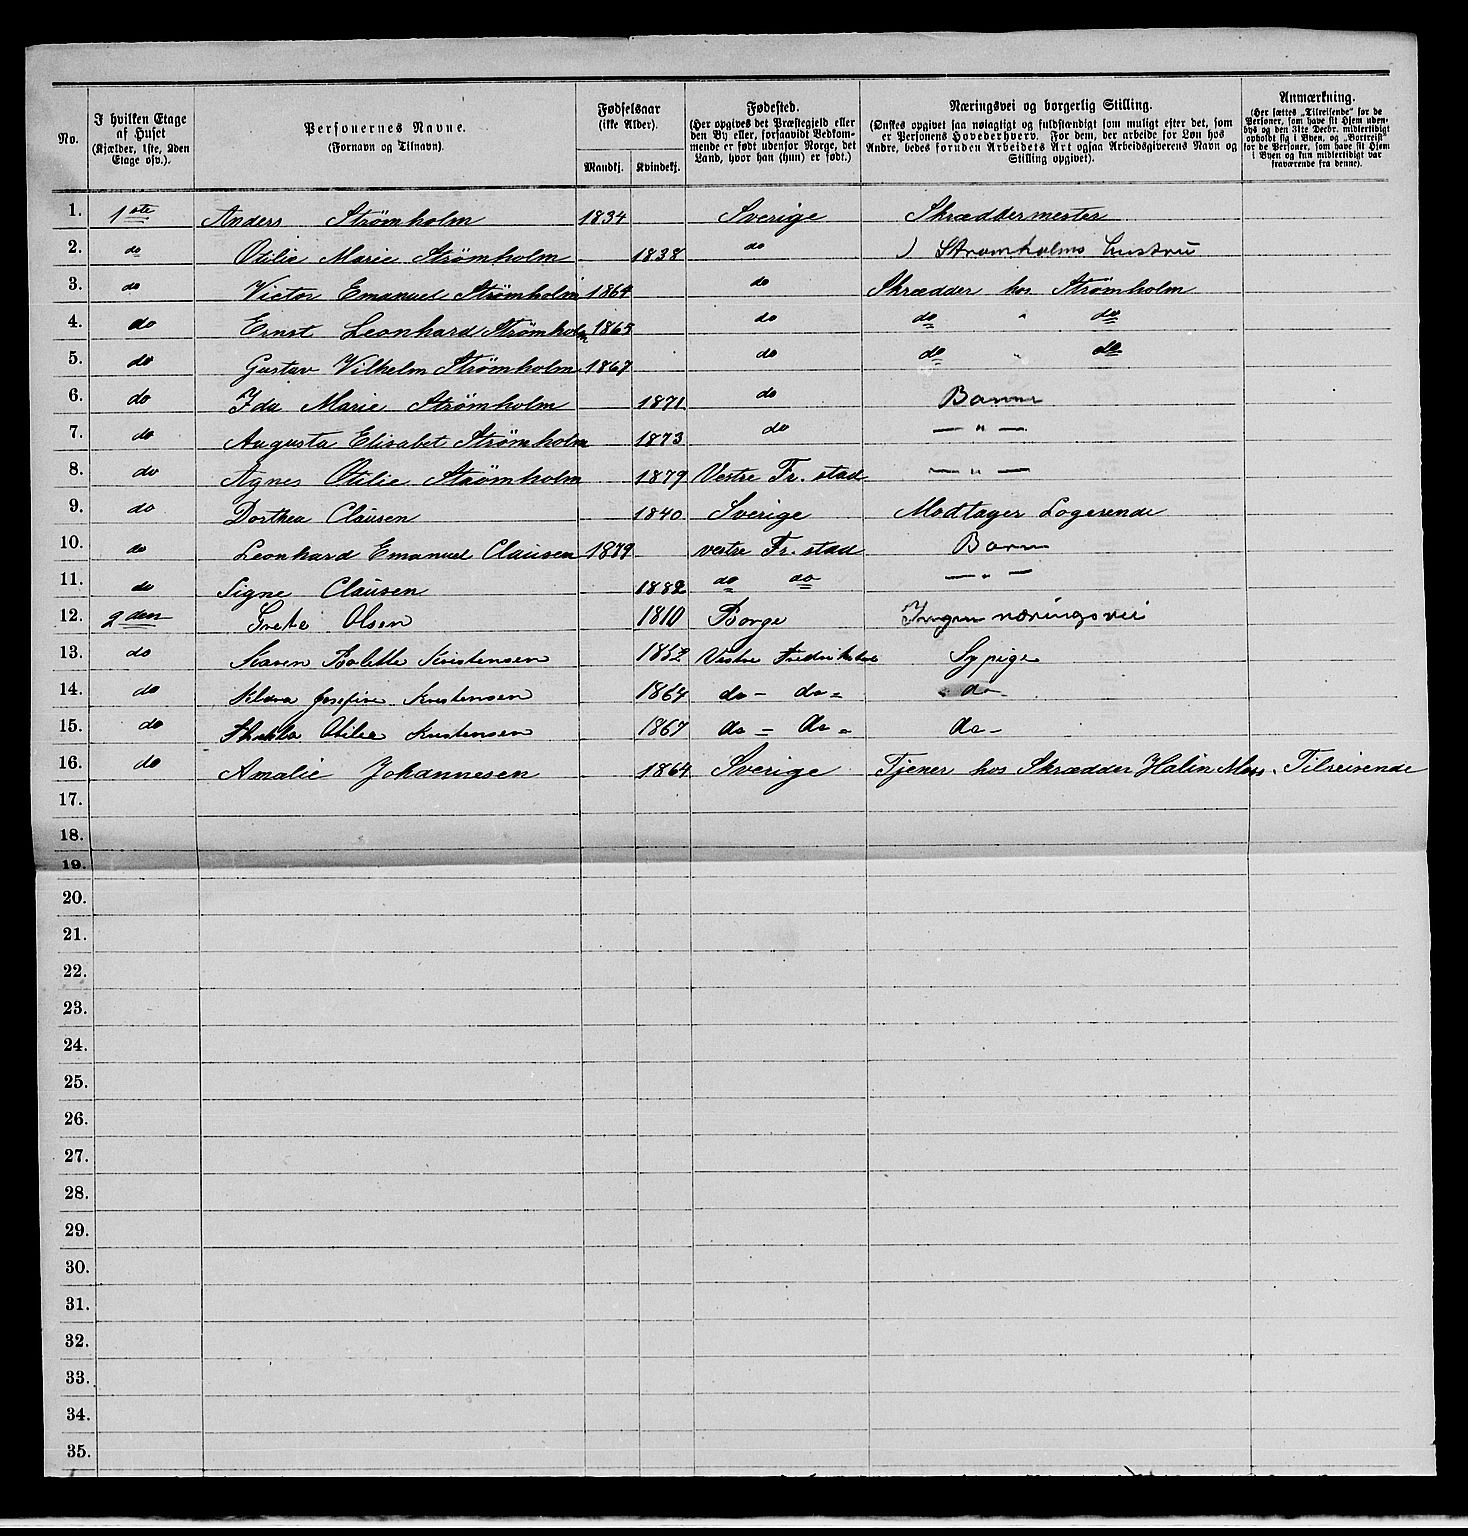 No. | I hvilken Etage af Huset (Kjælder, 1ste, 2den Etage osv.). | Personernes Navne. (Fornavn og Tilnavn). | Fødselsaar (ikke Alder). Mandkj. | Kvindekj. | Fødested. (Her opgives det Præstegjeld eller den By eller, forsaavidt Vedkommende er født udenfor Norge, det Land, hvor han (hun) er født.) | Næringsvei og borgerlig Stilling. (Ønskes opgivet saa nøiagtigt og fuldstændigt som muligt efter det, som er Personens Hovederhverv. For dem, der arbeide for Løn hos Andre, bedes foruden Arbeidets Art ogsaa Arbeidsgiverens Navn og Stilling opgivet). | Anmærkning. (Her sættes „Tilreisende“ for de Personer, som have sit Hjem udenbys og den 31te Decbr. midlertidigt opholdt sig i Byen, og „Bortreist“ for de Personer, som have sit Hjem i Byen og kun midlertidigt var fraværende fra denne).
1. 1ste Anders Strømholm 1834 Sverige Skræddermester
2. do Otilie Marie Strømholm 1838 do ) Strømholms Hustru
3. do Victor Emanuel Strømholm 1864 do Skrædder hos Strømholm
4. do Ernst Leonhard Strømholm 1865 do do " do
5. do Gustav Vilhelm Strømholm 1867 do do " do
6. do Ida Marie Strømholm 1871 do Barn
7. do Augusta Elisabet Strømholm 1873 do — " —
8. do Agnes Otilie Strømholm 1879 Vestre Fr. stad — " —
9. do Dorthea Clausen 1840 Sverige Modtager Logerende
10. do Leonhard Emanuel Clausen 1879 vestre Fr. stad Barn
11. do Signe Clausen 1882 do do — " —
12. 2den Grete Olsen 1810 Borge Ingen næringsvei
13. do Karen Bolette Kristensen 1862 Vestre Fredrikstad Sypige
14. do Klara Josefine Kristensen 1864 do - do - do
15. do Otilia Kristensen 1867 do - do - do -
16. do Amalie Johannesen 1864 Sverige Tjener hos Skrædder Halin Moss. Tilreisende
17.
18.
19.
20.
21.
22.
23.
24.
25.
26.
27.
28.
29.
30.
31.
32.
33.
34.
35.